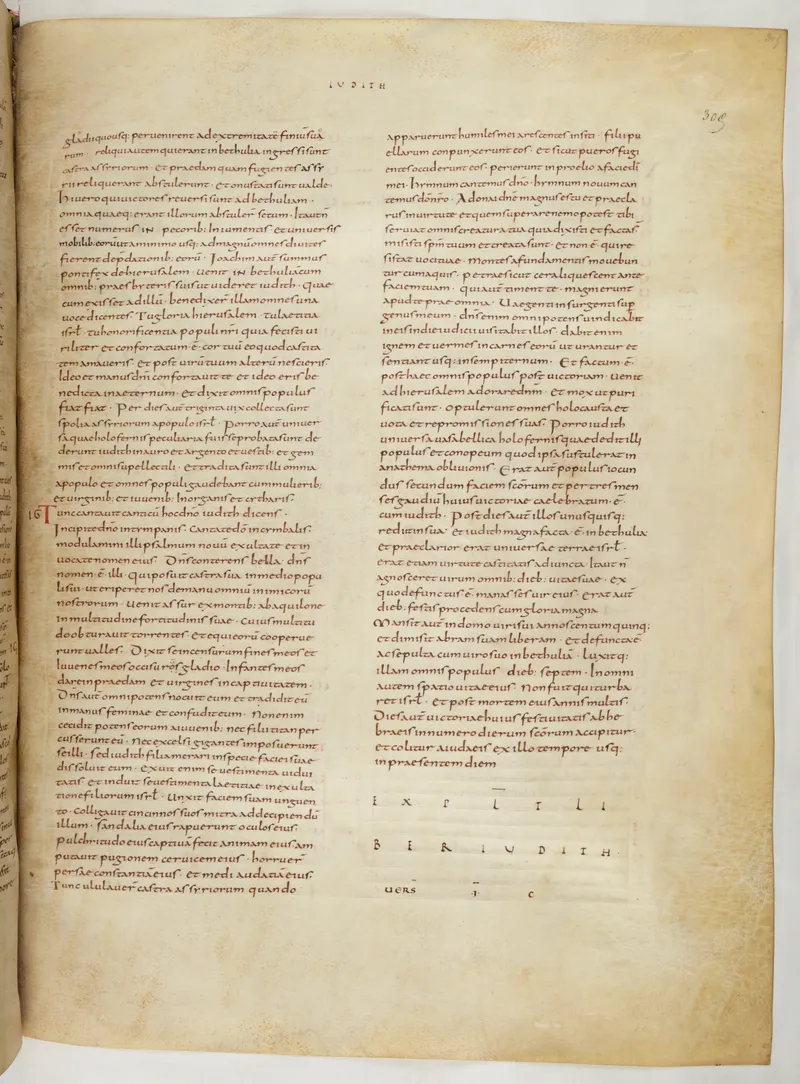 IUDITH
309
gladii quousq: peruenirent ad extremitatē finiū suo
rum · reliqui autem qui erant in bethulia ingressi sunt
castra assyriorum · et praedam quam fugientes assy
rii reliquerant abstulerunt · et onustati sunt ualde ·
hi uero qui uictores reuersi sunt ad bethuliam ·
omnia quaeq: erant illorum abstuler̄ secum · Ita ut n̄
esset numerus in pecorib: In iumentis et uniuersis
mobilib: eorū ut a minimo usq: ad magnū omnes diuites
fierent de p̄dationib: eorū · Joachim aut̄ summus
pontifex de hierusalem · uenit in bethuliā cum
omnib: praesbyteris suis ut uideret iudith · quae
cum exisset ad illū · benedixer̄ illam omnes una
uoce dicentes Tu gloria hierusalem · tu laetitia
isrł · tu honorificentia populi nr̄i quia fecisti ui
riliter et confortatum · ē · cor tuū eo quod castita
tem amaueris · et post uirū tuum alterū nescieris
Ideo et manus dn̄i confortauit te · et ideo eris be
nedicta in aeternum · Et dixit omnis populus
fiat fiat · Per dies aut̄ triginta uix collecta sunt
spolia assyriorum a populo isrł · Porro aut̄ uniuer
sa quae holofernis peculiaria fuisse probata sunt de
derunt iudith in auro et argento et uestib: et gem
mis et omni supellectili · et tradita sunt illi omnia
a populo et omnes populi gaudebant cum mulierib:
et uirginib: et iuuenib: In organis et citharis ·
16 Tunc cantauit canticū hoc dn̄o iudith dicens ·
Incipite dn̄o in tympanis · Cantate dn̄o in cymbalis
modulamini illi psalmum nouū exultate et in
uocate nomen eius · Dn̄s conterens bella · dn̄s
nomen · ē · illi · qui posuit castra sua in medio popu
li sui · ut eriperet nos de manu omniū inimicorū
nostrorum · Uenit assur ex montib: ab aquilone
in multitudine fortitudinis suae · Cuius multitu
do obturauit torrentes et equi eorū cooperue
runt ualles · Dixit se incensurum fines meos et
Iuuenes meos occisurū gladio · Infantes meos
dare in praedam et uirgines in captiuitatem ·
Dn̄s aut̄ omnipotens nocuit eum et tradidit eū
in manus feminae et confudit eum · Non enim
cecidit potens eorum a iuuenib: nec filii titan per
cusserunt eū · Nec excelsi gigantes imposuerunt
se illi · sed iudith filia merari in specie faciei suae
dissoluit eum · Exuit enim se uestimenta uidui
tatis et induit se uestimenta laetitiae in exulta
tione filiorum isrł · Unxit faciem suam unguen
to · Colligauit cincinnos suos mitra ad decipiendū
illum · sandalia eius rapuerunt oculos eius ·
pulchritudo eius captiuā fecit animam eius am
putauit pugione ceruicem eius · horruer̄
persae constantiā eius · et medi audatia eius ·
Tunc ululauer̄ castra assyriorum quando
apparuerunt humiles mei arescentes in siti · filii pu
ellarum conpunxerunt eos · et sicut pueros fugi
entes occiderunt eos · perierunt in proelio a facie dn̄i
mei · hymnum cantemus dn̄o · hymnum nouum can
temus dō nr̄o · Adonai dn̄e magnus es tu et praecla
rus in uirtute et quem superare nemo potest tibi
seruiat omnis creatura tua quia dixisti et facta s̄
misisti sp̄m tuum et creata sunt · et non ē · qui re
sistat uoci tuae · Montes a fundamentis mouebun
tur cum aquis · petrae sicut cera liquescent ante
faciem tuam · qui aut̄ timent te · magni erunt
apud te prae omnia · Uae genti insurgenti sup
genus meum · dn̄s enim omnipotens uindicabit
in eis In die iudicii uisitabit illos · dabit enim
ignem et uermes in carnes eorū ut urantur et
sentiant usq: in sempiternum · Et factum · ē ·
post haec omnis populus post uictoriam · uenit
ad hierusalem adorare dn̄m · et mox ut puri
ficati sunt · optulerunt omnes holocausta et
uota et repromissiones suas · Porro iudith
uniuersa uasa bellica holofernis quae dedit illi
populus et conopeum quod ipsa sustulerat in
anathema obliuionis · Erat aut̄ populus iocun
dus secundum faciem sc̄orum et per tres men
ses gaudiū huius uictoriae caelebratum · ē ·
cum iudith · Post dies aut̄ illos unusquisq:
rediit in sua · et iudith magna facta · ē · in bethulia
et praeclarior erat uniuersae terrae isrł ·
erat etiam uirtute castitatis adiuncta · Ita ut n̄
agnosceret uirum omnib: dieb: uitae suae · ex
quo defunctus ē · manasses uir eius · erat aut̄
dieb: festis procedens cum gloria magna
Mansit aut̄ in domo uiri sui annos centum quinq:
et dimisit abram suam liberam · et defuncta ē ·
ac sepulta cum uiro suo in bethuliā · Luxitq:
illam omnis populus dieb: septem · In omni
autem spatio uitae eius · Non fuit qui turba
ret isrł · et post mortem eius annis multis ·
Dies aut̄ uictoriae huius festiuitatis ab he
braeis in numero dierum sc̄orum accipitur ·
et colitur a iudaeis ex illo tempore · usq:
in praesentem diem
EXPL̄ LI
BER IUDITH
UERS Ī C